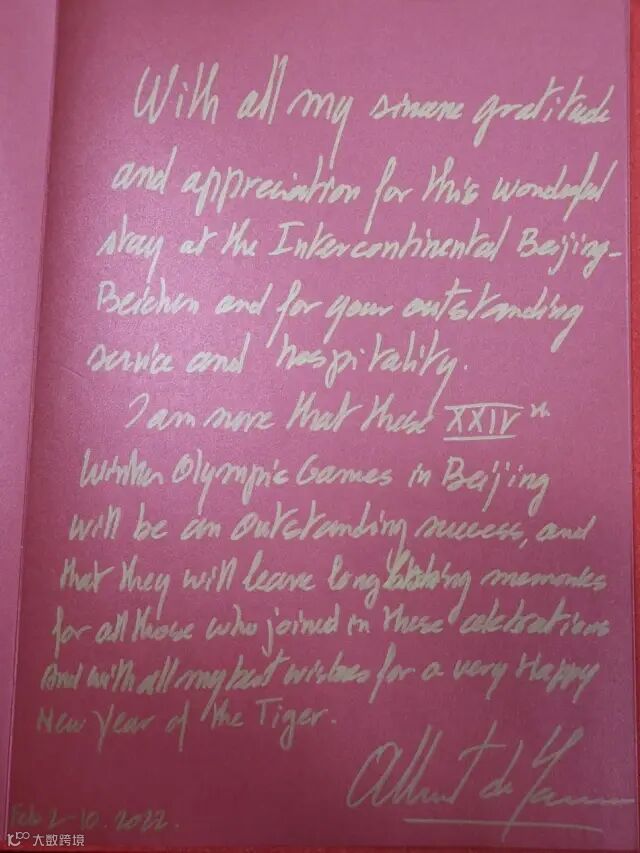 With all my sincere gratitude
and appreciation for this wonderful
stay at the Intercontinental Beijing-
Beichen and for your outstanding
service and hospitality.
I am sure that these XXIV th
Winter Olympic Games in Beijing
will be an outstanding success, and
that they will leave long lasting memories
for all those who joined in these celebrations
and with all my best wishes for a very Happy
New Year of the Tiger.
Albert de
Feb 2-10. 2022.
大数跨境